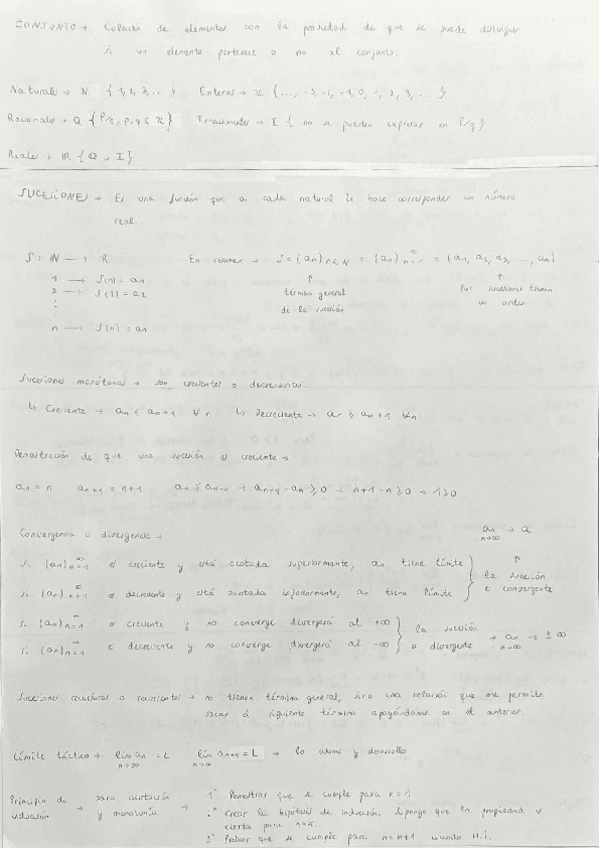 CONJUNTO → Colección de elementos con la propiedad de que se puede distinguir
si un elemento pertenece o no al conjunto.
Naturales → N { 1, 2, 3, ... } Enteros → Z { ..., -3, -2, -1, 0, 1, 2, 3, ... }
Racionales → Q { P/q, p, q ∈ Z } Irracionales → I { no se pueden expresar en P/q }
Reales → R { Q ∪ I }
SUCESIONES → Es una función que a cada natural le hace corresponder un número
real.
S: N → R En resumen → S = (an) n∈N = (an) ∞ n=1 = (a1, a2, a3, ..., an)
1 → S(1) = a1
2 → S(2) = a2
⋮
n → S(n) = an
↑ ↑
término general las sucesiones tienen
de la sucesión un orden
Sucesiones monótonas → son crecientes o decrecientes.
↳ Creciente → an ≤ an+1 ∀n ↳ Decreciente → an ≥ an+1 ∀n
Demostración de que una sucesión es creciente →
an = n an+1 = n+1 an ≤ an+1 → an+1 - an ≥ 0 → n+1-n ≥ 0 → 1 ≥ 0
Convergencia o divergencia → an → a n→∞
si (an) ∞ n=1 es creciente y está acotada superiormente, an tiene límite
si (an) ∞ n=1 es decreciente y está acotada inferiormente, an tiene límite
↑ la sucesión
es convergente
si (an) ∞ n=1 es creciente y no converge divergerá al +∞
si (an) ∞ n=1 es decreciente y no converge divergerá al -∞
la sucesión
es divergente → an → ± ∞ n→∞
Sucesiones recursivas o recurrentes → no tienen término general, sino una relación que me permite
sacar el siguiente término apoyándome en el anterior.
Límite táctico → lim an = L n→∞ lim an+1 = L n→∞ → lo asumo y desarrollo
Principio de inducción → para acotación y monotonía →
1º Demostrar que se cumple para n = 1
2º Crear la hipótesis de inducción. Supongo que la propiedad es
cierta para n=k.
3º Probar que se cumple para n=k+1 usando H.I.